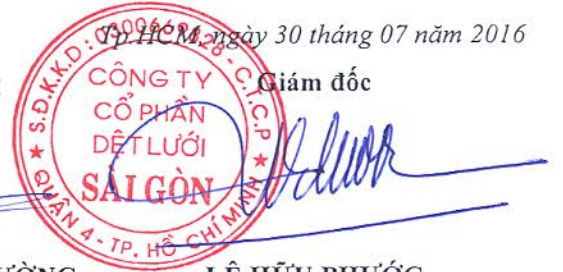 Tp.HCM, ngày 30 tháng 07 năm 2016
Giám đốc
S.Đ.K.K.D: - C.T.C.P
CÔNG TY
CỔ PHẦN
DỆT LƯỚI
SÀI GÒN
QUẬN 4 - TP. HỒ CHÍ MINH
LÊ HỮU PHƯỚC